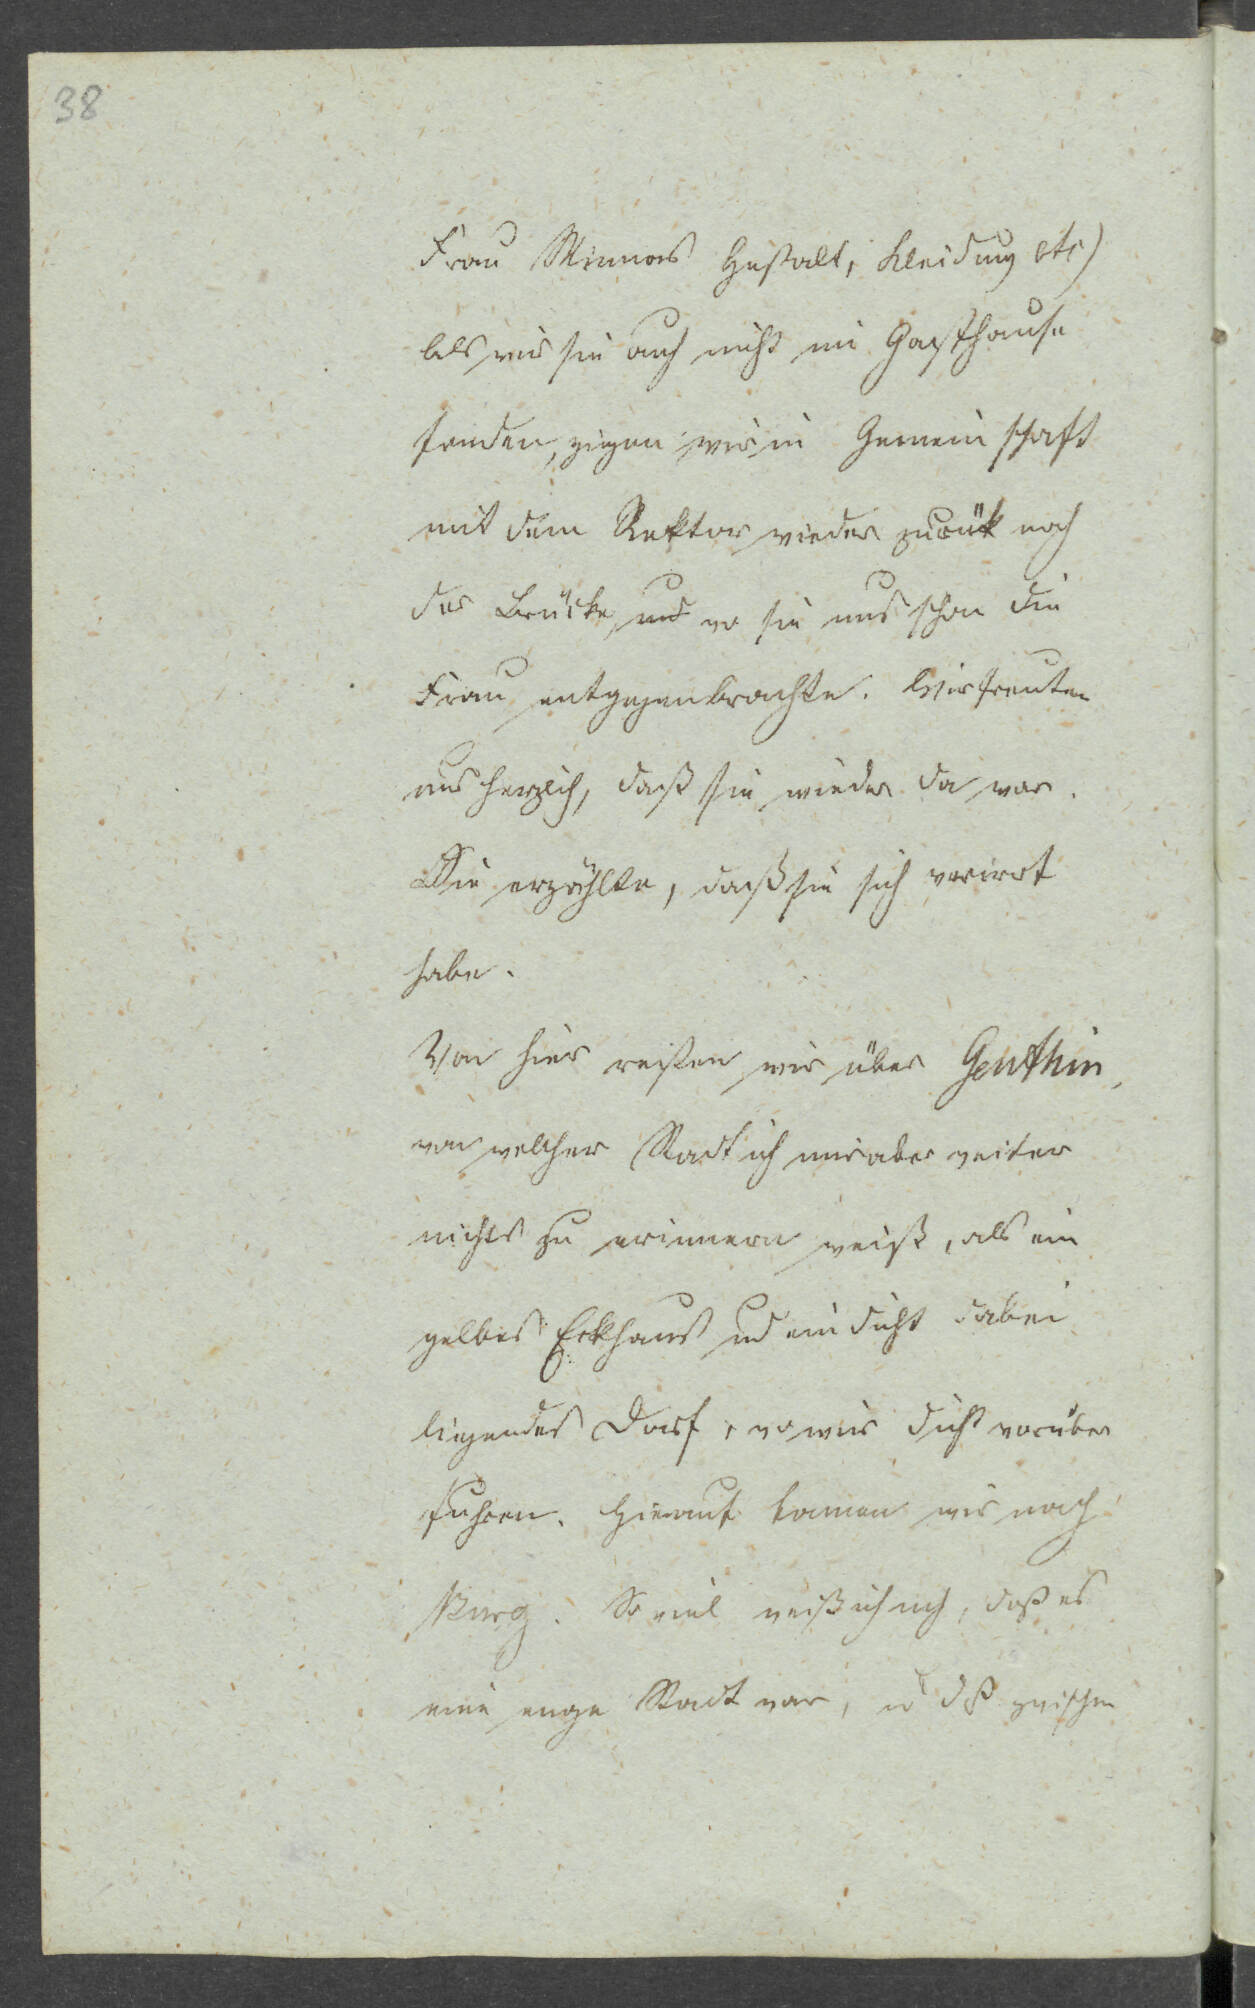 38
Frau Minnas Gestalt, Kleidung etc)
Als wir sie auch nicht im Gasthause
fanden, gingen wir in Gemeinschaft
mit dem Rektor wieder zurük nach
der Brücke, und wo sie uns schon die
Frau entgegenbrachte. Wir freuten
uns herzlich, daß sie wieder da war.
Sie erzählte, daß sie sich verirrt
habe.
Von hier reisten wir über Genthin,
von welcher Stadt ich mir aber weiter
nichts zu erinnern weiß, als ein
gelbes Eckhaus und ein dicht dabei
liegendes Dorf, wo wir dicht vorüber
fuhren. Hierauf kamen wir nach
Burg. So viel weiß ich noch, daß es
eine enge Stadt war, u dß zwischen